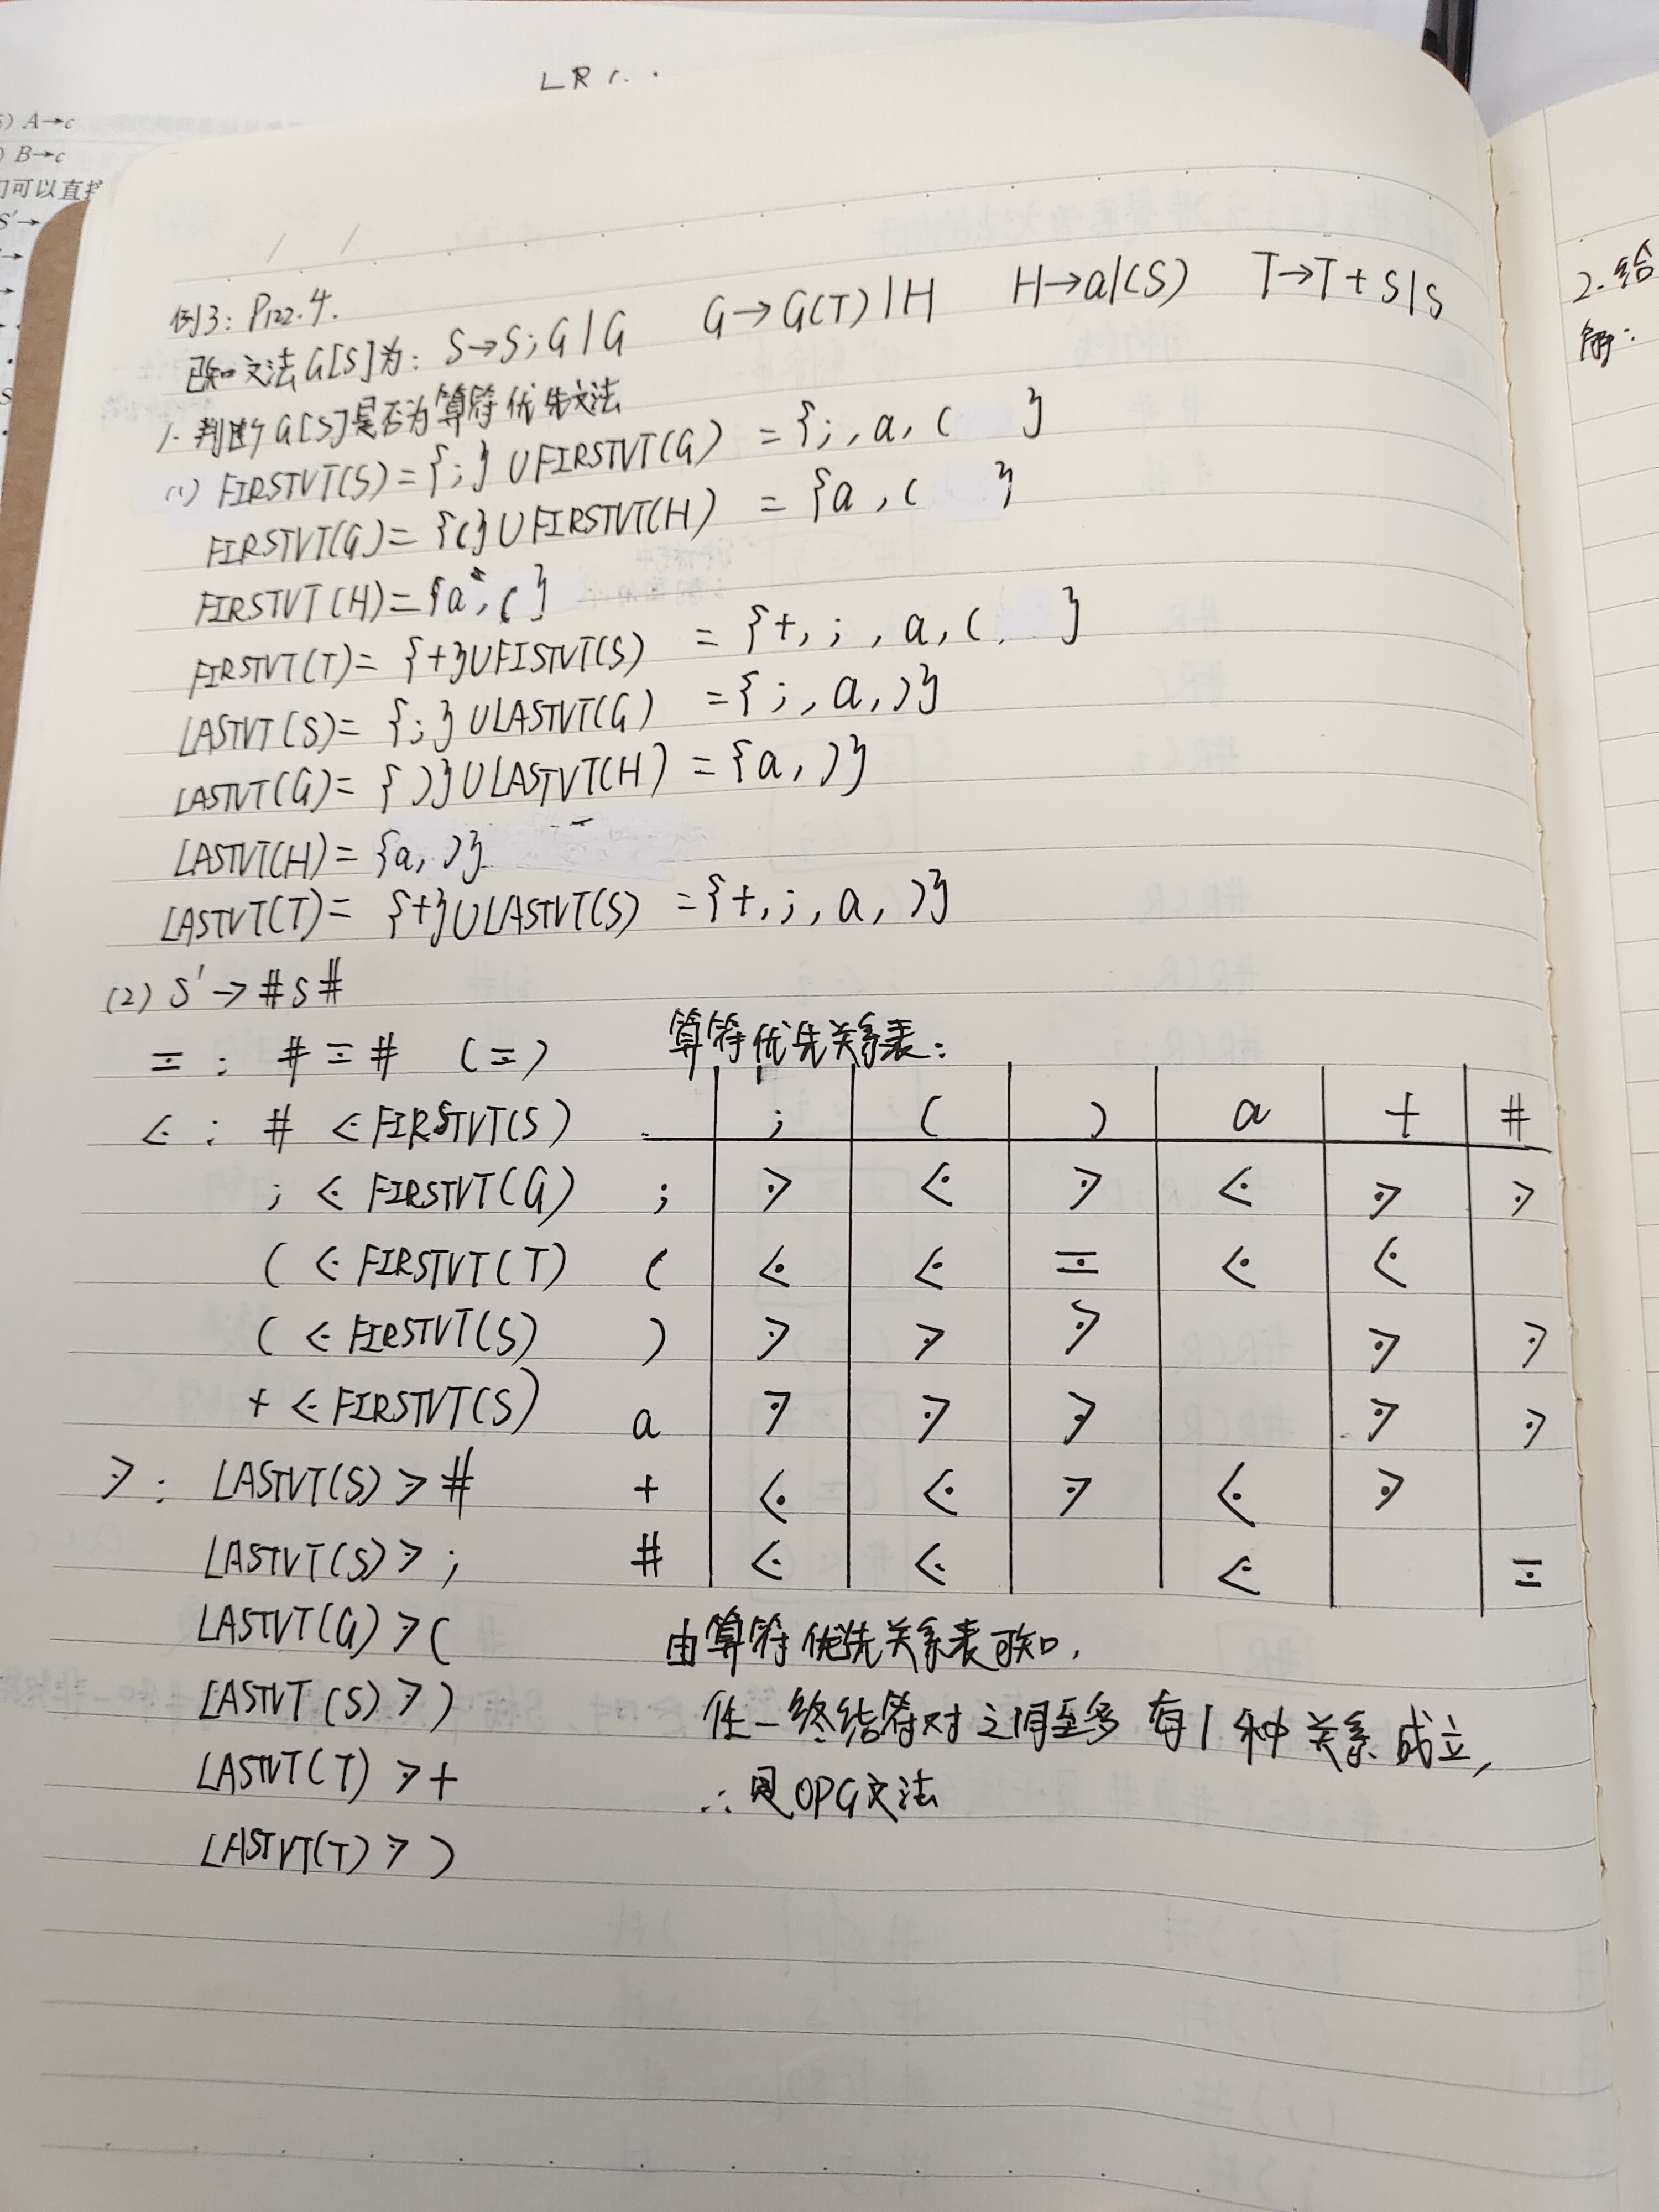 LR
A→c
B→c
们可以直接
S'→
例3：P122.4.
已知文法G[S]为：S→S;G|G G→G(T)|H H→a|(S) T→T+S|S
1. 判断G[S]是否为算符优先文法
(1) FIRSTVT(S)={;}∪FIRSTVT(G) ={;,a,( }
FIRSTVT(G)={(}∪FIRSTVT(H) ={a,( }
FIRSTVT(H)={a,(}
FIRSTVT(T)={+}∪FISTVT(S) ={+,;,a,( }
LASTVT(S)={;}∪LASTVT(G) ={;,a,)}
LASTVT(G)={)}∪LASTVT(H) ={a,)}
LASTVT(H)={a,)}
LASTVT(T)={+}∪LASTVT(S) ={+,;,a,)}
(2) S'→#S#
算符优先关系表：
≡： #≡# (≡)
⋖： #⋖FIRSTVT(S)
;⋖FIRSTVT(G)
(⋖FIRSTVT(T)
(⋖FIRSTVT(S)
+⋖FIRSTVT(S)
⋗： LASTVT(S)⋗#
LASTVT(S)⋗;
LASTVT(G)⋗(
LASTVT(S)⋗)
LASTVT(T)⋗+
LASTVT(T)⋗)
; ( ) a + #
; ⋗ ⋖ ⋗ ⋖ ⋗ ⋗
( ⋖ ⋖ ≡ ⋖ ⋖
) ⋗ ⋗ ⋗ ⋗ ⋗
a ⋗ ⋗ ⋗ ⋗ ⋗
+ ⋖ ⋖ ⋗ ⋖ ⋗
# ⋖ ⋖ ⋖ ≡
由算符优先关系表可知，
任一终结符对之间至多有1种关系成立，
∴是OPG文法
2.给
解：